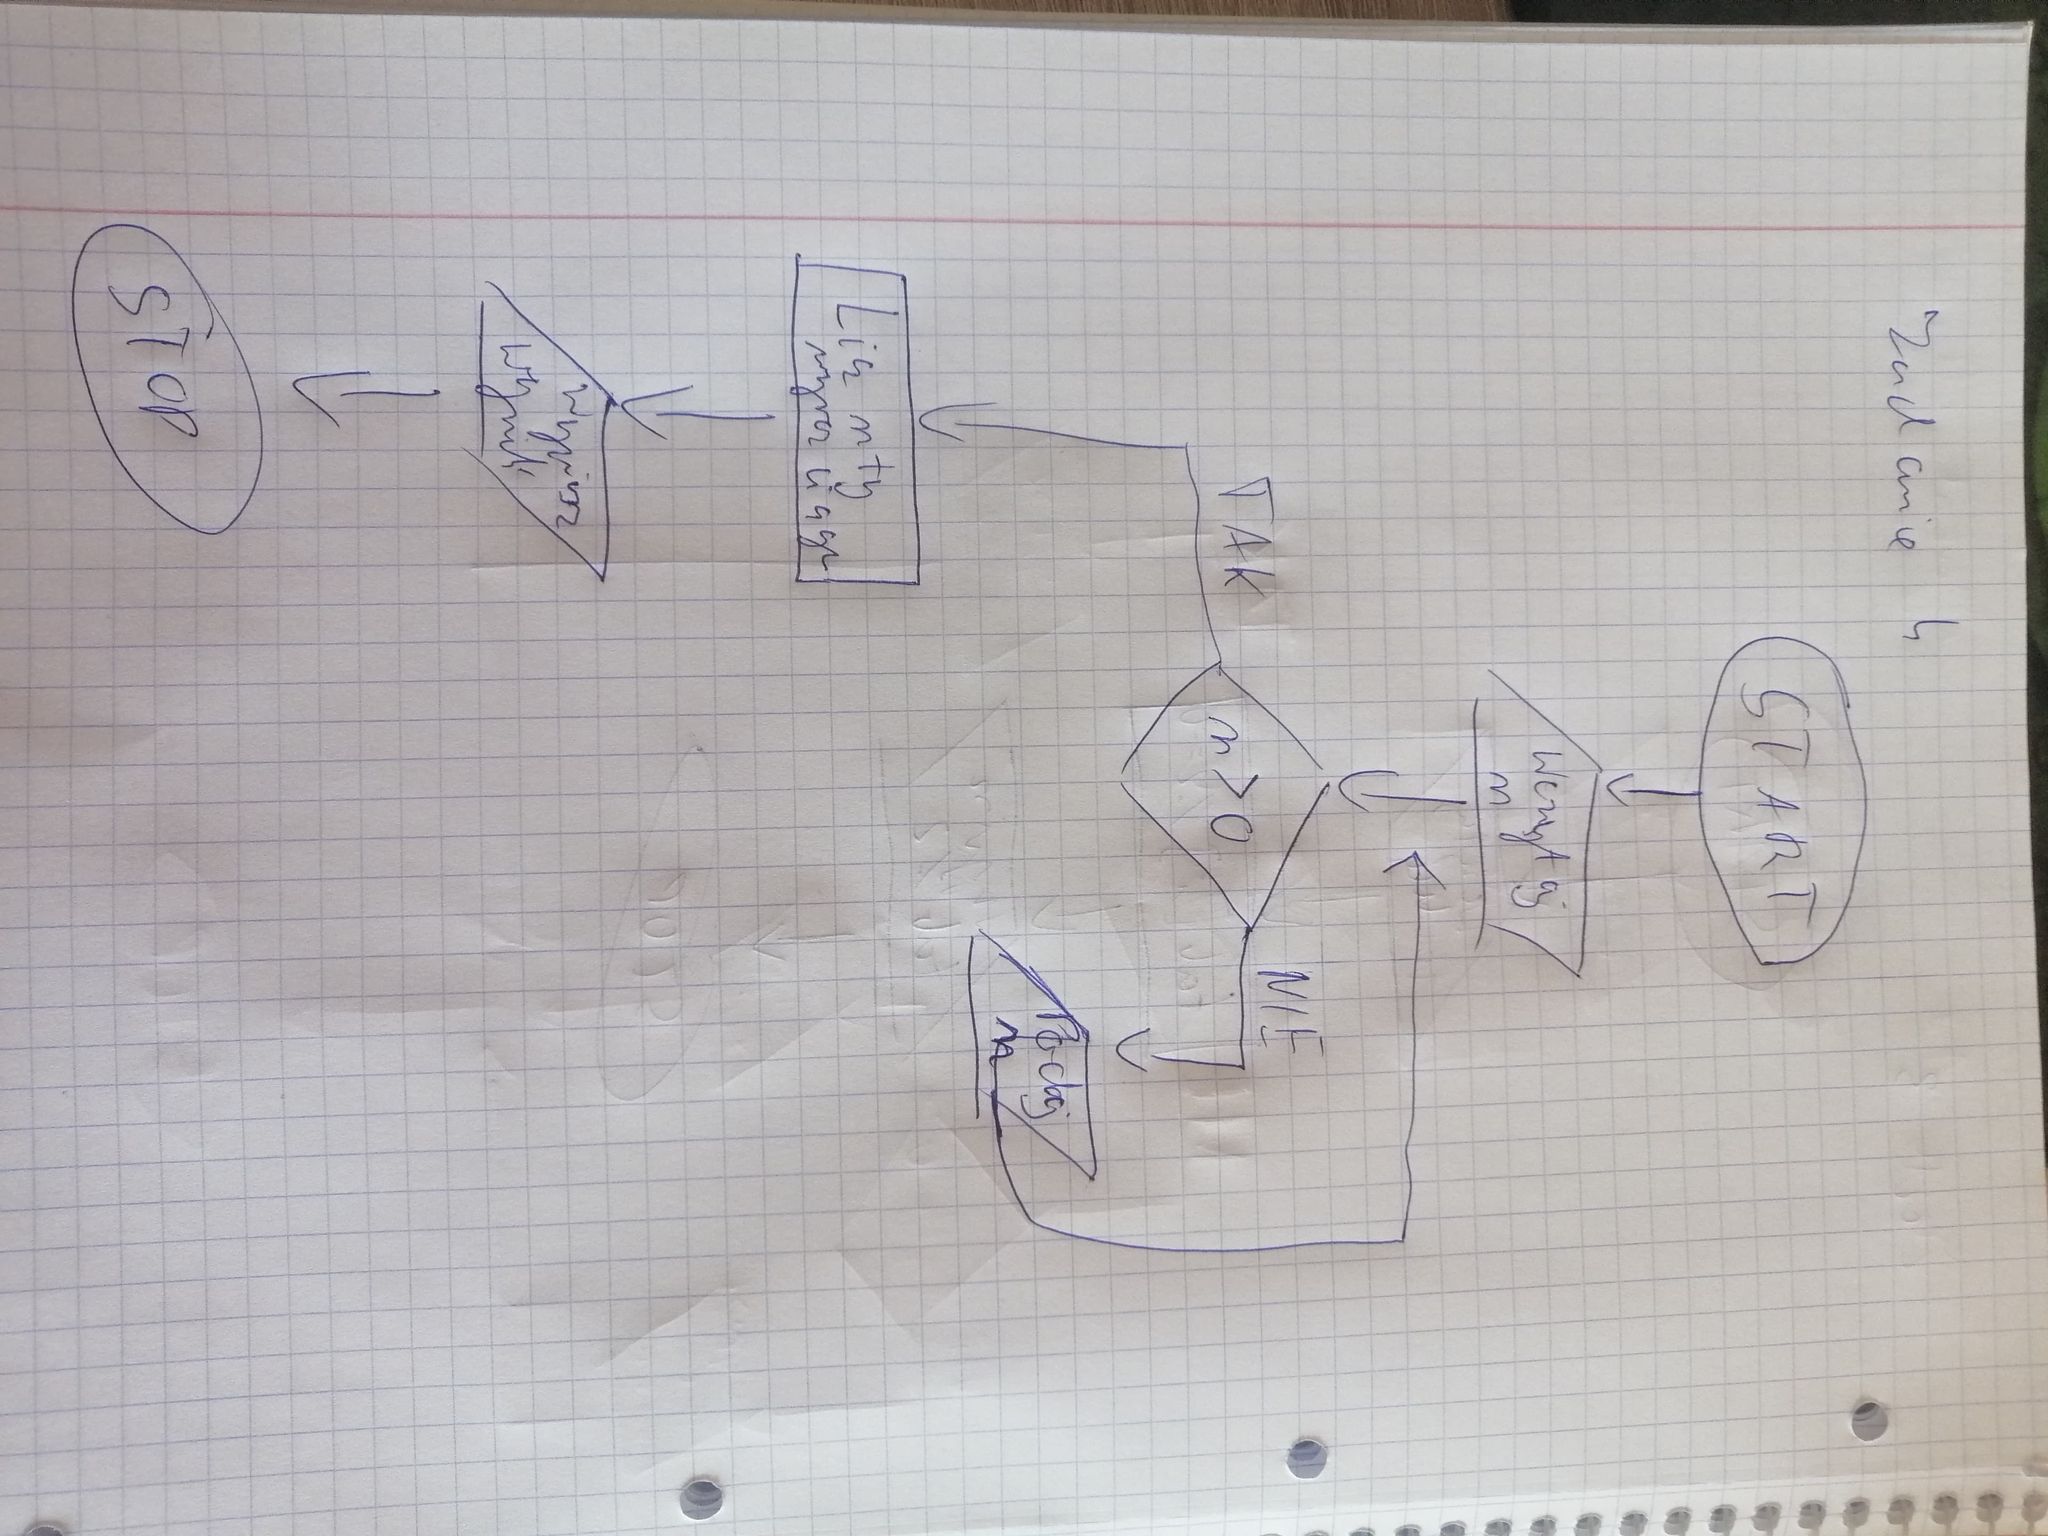 Zadanie 4
START
Wczytaj
n
n>0
TAK
NIE
Podaj
n
Licz nty
wyraz ciągu
Wypisz
wynik
STOP